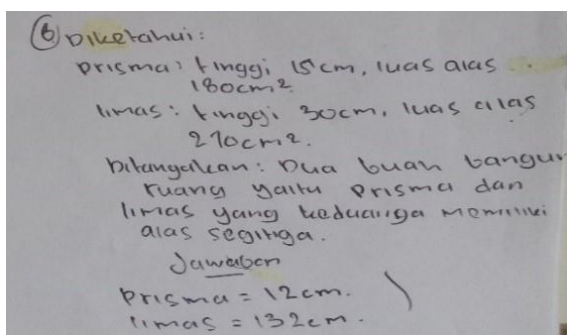 6 Diketahui:
Prisma: tinggi 15cm, luas alas
180cm²
limas: tinggi 30cm, luas alas
270cm².
Ditanyakan: Dua buah bangun
ruang yaitu Prisma dan
limas yang keduanya memiliki
alas segitiga.
Jawaban
Prisma = 12cm.
limas = 132cm.